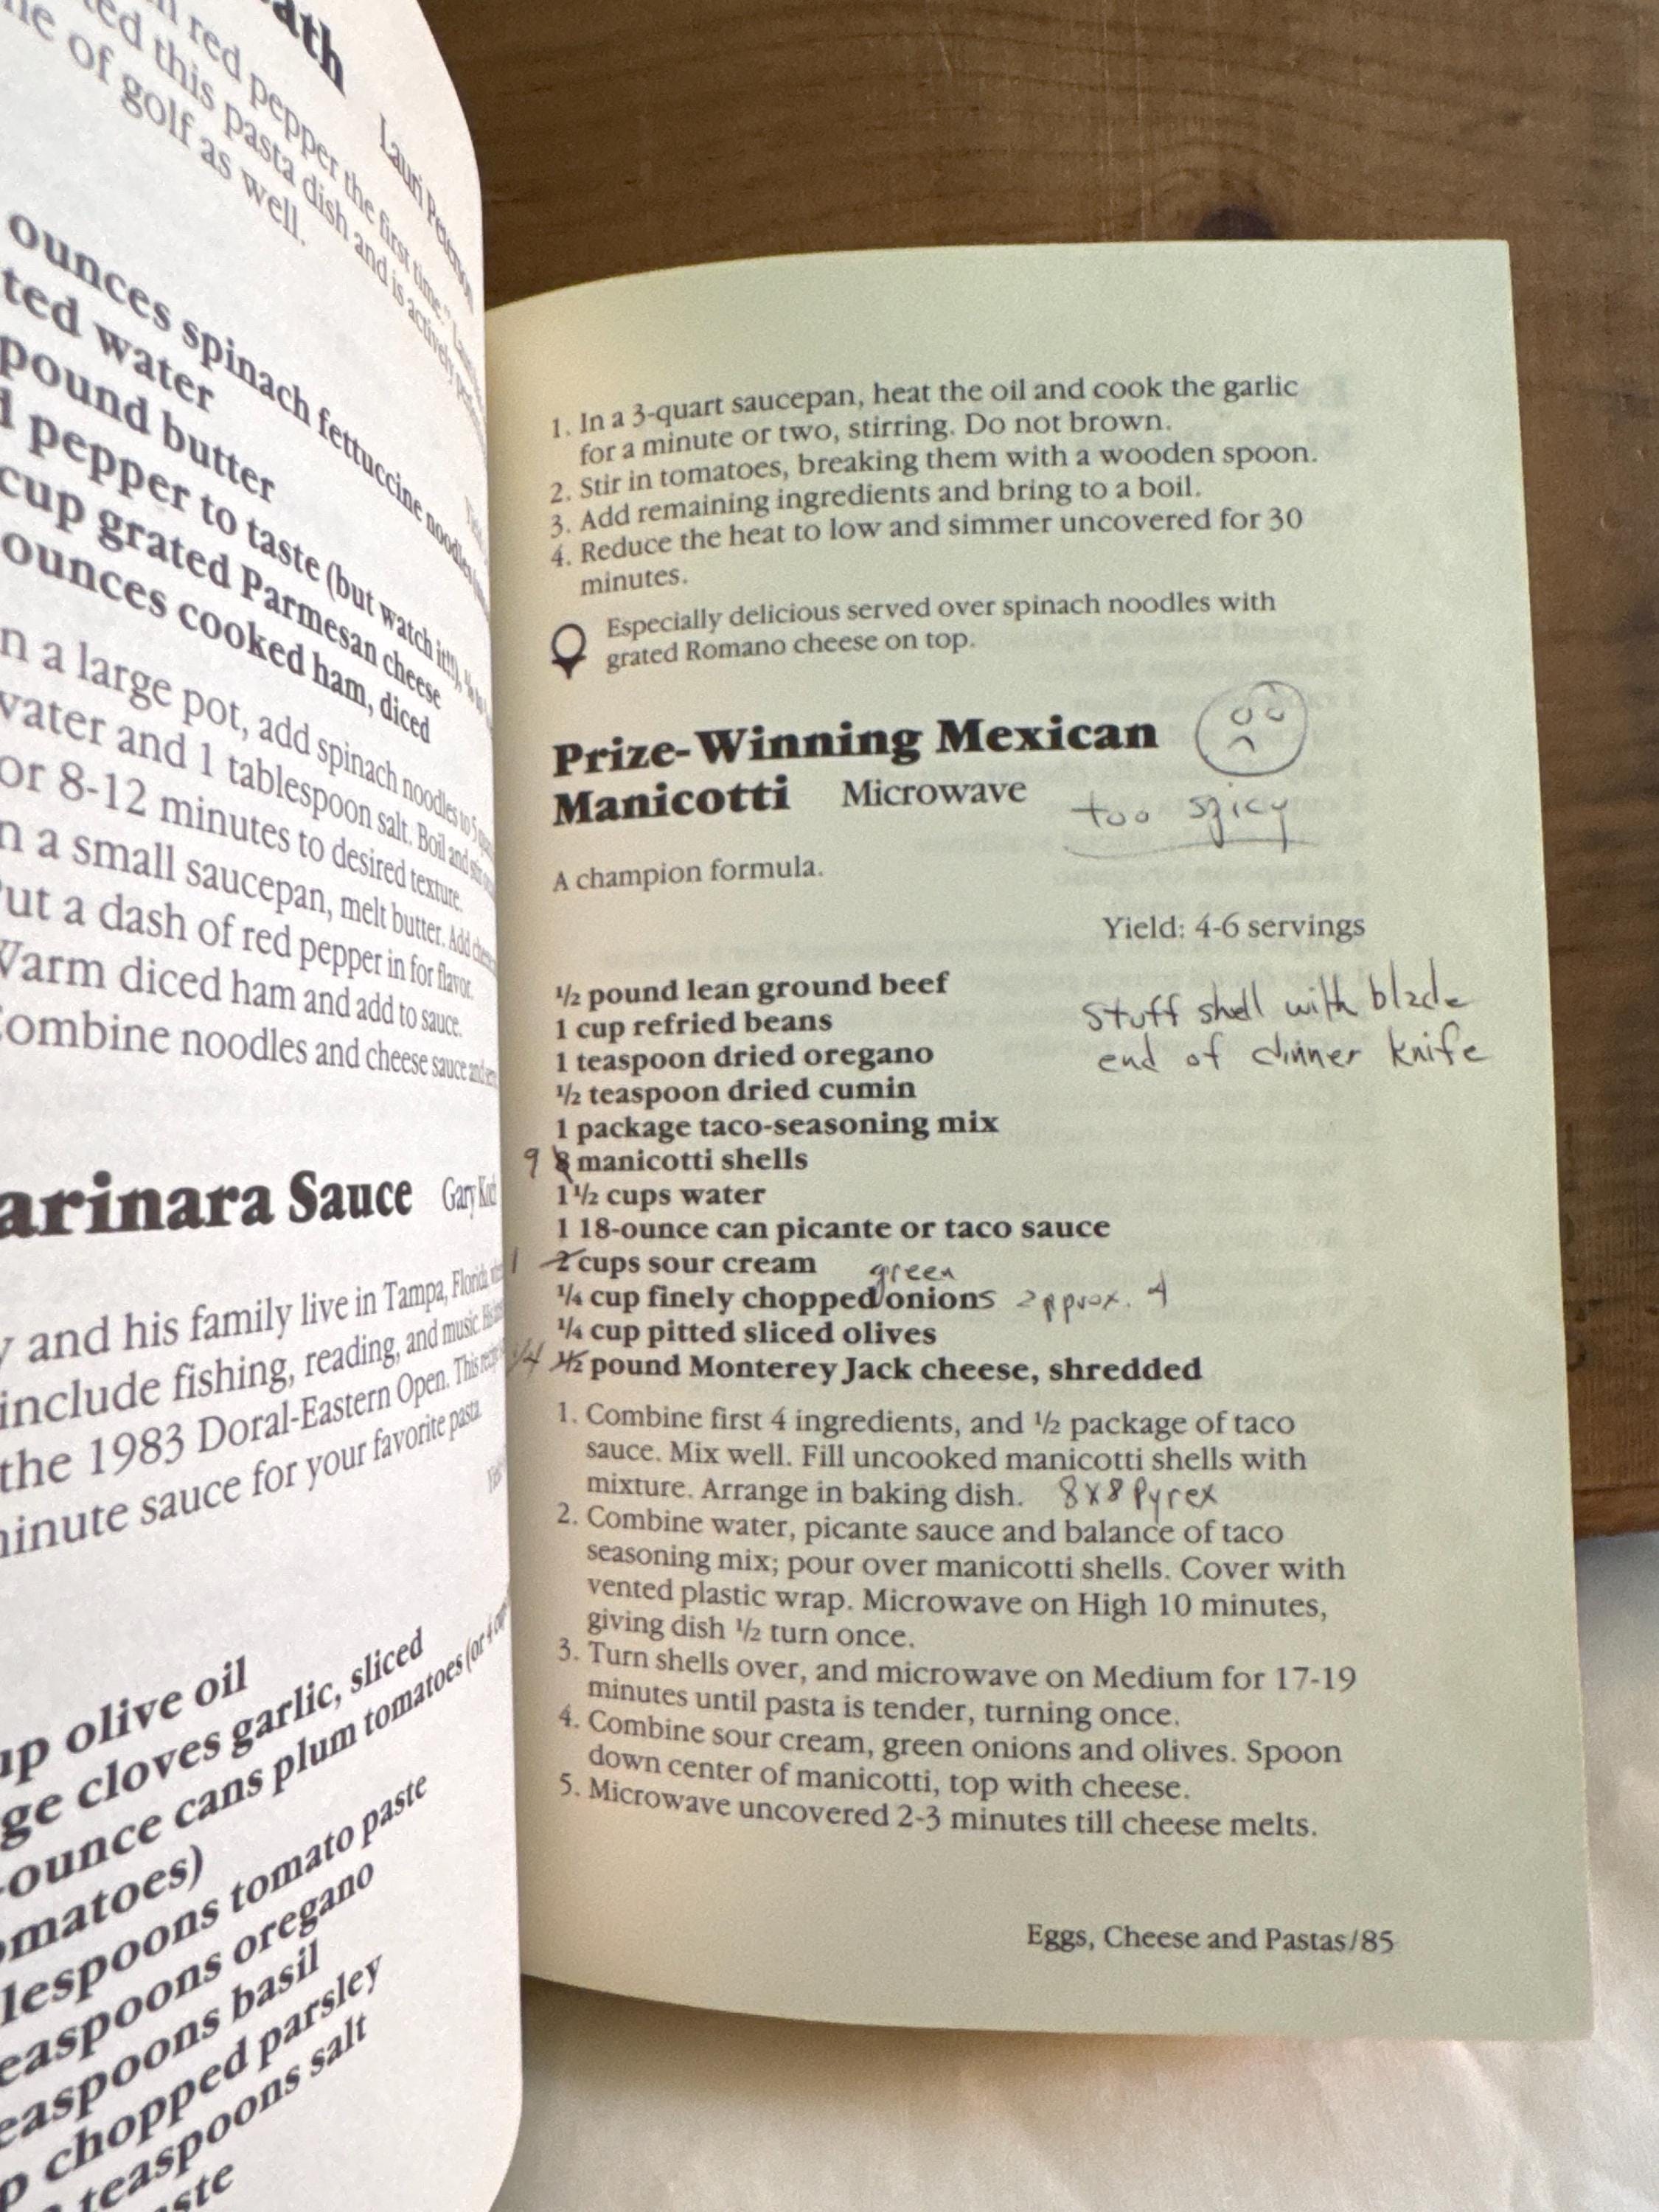 ath
Lauri Peterson
red pepper the first time."
ed this pasta dish and is actively
of golf as well.
ounces spinach fettuccine noodles
ted water
pound butter
pepper to taste (but watch it!!),
cup grated Parmesan cheese
ounces cooked ham, diced
n a large pot, add spinach noodles to 5
water and 1 tablespoon salt. Boil and
or 8-12 minutes to desired texture.
n a small saucepan, melt butter. Add
ut a dash of red pepper in for flavor.
Warm diced ham and add to sauce.
Combine noodles and cheese sauce and
arinara Sauce Gary
y and his family live in Tampa, Florida,
include fishing, reading, and music. His
the 1983 Doral-Eastern Open. This
minute sauce for your favorite pasta.
up olive oil
ge cloves garlic, sliced
-ounce cans plum tomatoes (or 4
omatoes)
lespoons tomato paste
easpoons oregano
easpoons basil
p chopped parsley
teaspoons salt
ste
1. In a 3-quart saucepan, heat the oil and cook the garlic
for a minute or two, stirring. Do not brown.
2. Stir in tomatoes, breaking them with a wooden spoon.
3. Add remaining ingredients and bring to a boil.
4. Reduce the heat to low and simmer uncovered for 30
minutes.
Especially delicious served over spinach noodles with
grated Romano cheese on top.
Prize-Winning Mexican
Manicotti Microwave
too spicy
A champion formula.
Yield: 4-6 servings
½ pound lean ground beef
1 cup refried beans
stuff shell with blade
end of dinner knife
1 teaspoon dried oregano
½ teaspoon dried cumin
1 package taco-seasoning mix
9 8 manicotti shells
1½ cups water
1 18-ounce can picante or taco sauce
1 2 cups sour cream
green
¼ cup finely chopped onions approx. 4
¼ cup pitted sliced olives
1/4 ½ pound Monterey Jack cheese, shredded
1. Combine first 4 ingredients, and ½ package of taco
sauce. Mix well. Fill uncooked manicotti shells with
mixture. Arrange in baking dish. 8x8 Pyrex
2. Combine water, picante sauce and balance of taco
seasoning mix; pour over manicotti shells. Cover with
vented plastic wrap. Microwave on High 10 minutes,
giving dish ½ turn once.
3. Turn shells over, and microwave on Medium for 17-19
minutes until pasta is tender, turning once.
4. Combine sour cream, green onions and olives. Spoon
down center of manicotti, top with cheese.
5. Microwave uncovered 2-3 minutes till cheese melts.
Eggs, Cheese and Pastas/85